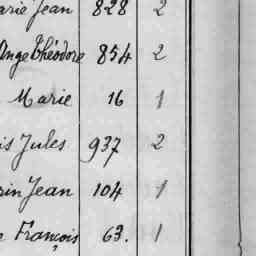 arie Jean 828 2
Ange Théodore 854 2
Marie 16 1
is Jules 937 2
rin Jean 104 1
e François 63. 1